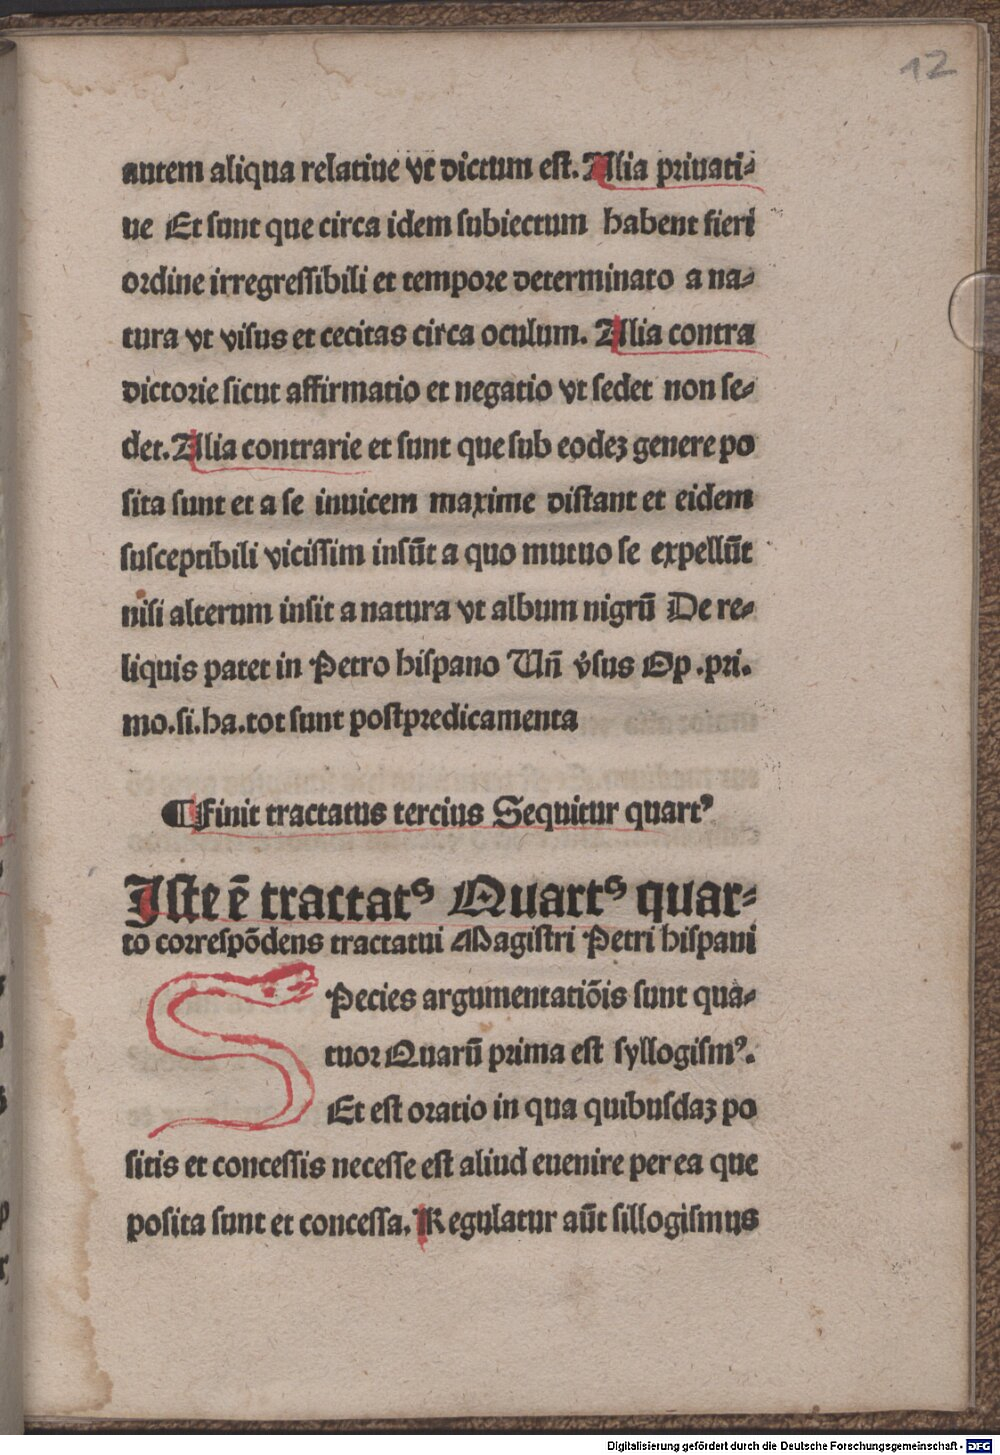 12
autem aliqua relatiue vt dictum est. Alia priuati-
ue Et sunt que circa idem subiectum habent fieri
ordine irregressibili et tempore determinato a na-
tura vt visus et cecitas circa oculum. Alia contra
dictorie sicut affirmatio et negatio vt sedet non se-
det. Alia contrarie et sunt que sub eodeꝫ genere po
sita sunt et a se inuicem maxime distant et eidem
susceptibili vicissim insūt a quo mutuo se expellūt
nisi alterum insit a natura vt album nigrū De re-
liquis patet in Petro hispano Un̄ v̓sus Op .pri.
mo.si.ha.tot sunt postpredicamenta
¶ Finit tractatus tercius Sequitur quartꝰ
Iste ē tractatꝰ Quartꝰ quar-
to correspōdens tractatui Magistri Petri hispani
SPecies argumentatiōis sunt qua-
tuor Quarū prima est syllogismꝰ.
Et est oratio in qua quibusdaꝫ po
sitis et concessis necesse est aliud euenire per ea que
posita sunt et concessa. Regulatur aūt sillogismus
Digitalisierung gefördert durch die Deutsche Forschungsgemeinschaft - DFG